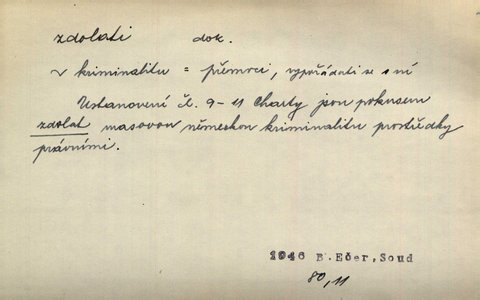 zdolati dok.
~ kriminalitu = přemoci, vypořádati se s ní
Ustanovení čl. 9-11 Charty jsou pokusem
zdolat masovou německou kriminalitu prostředky
právními.
1946 B. Ečer, Soud
80,11